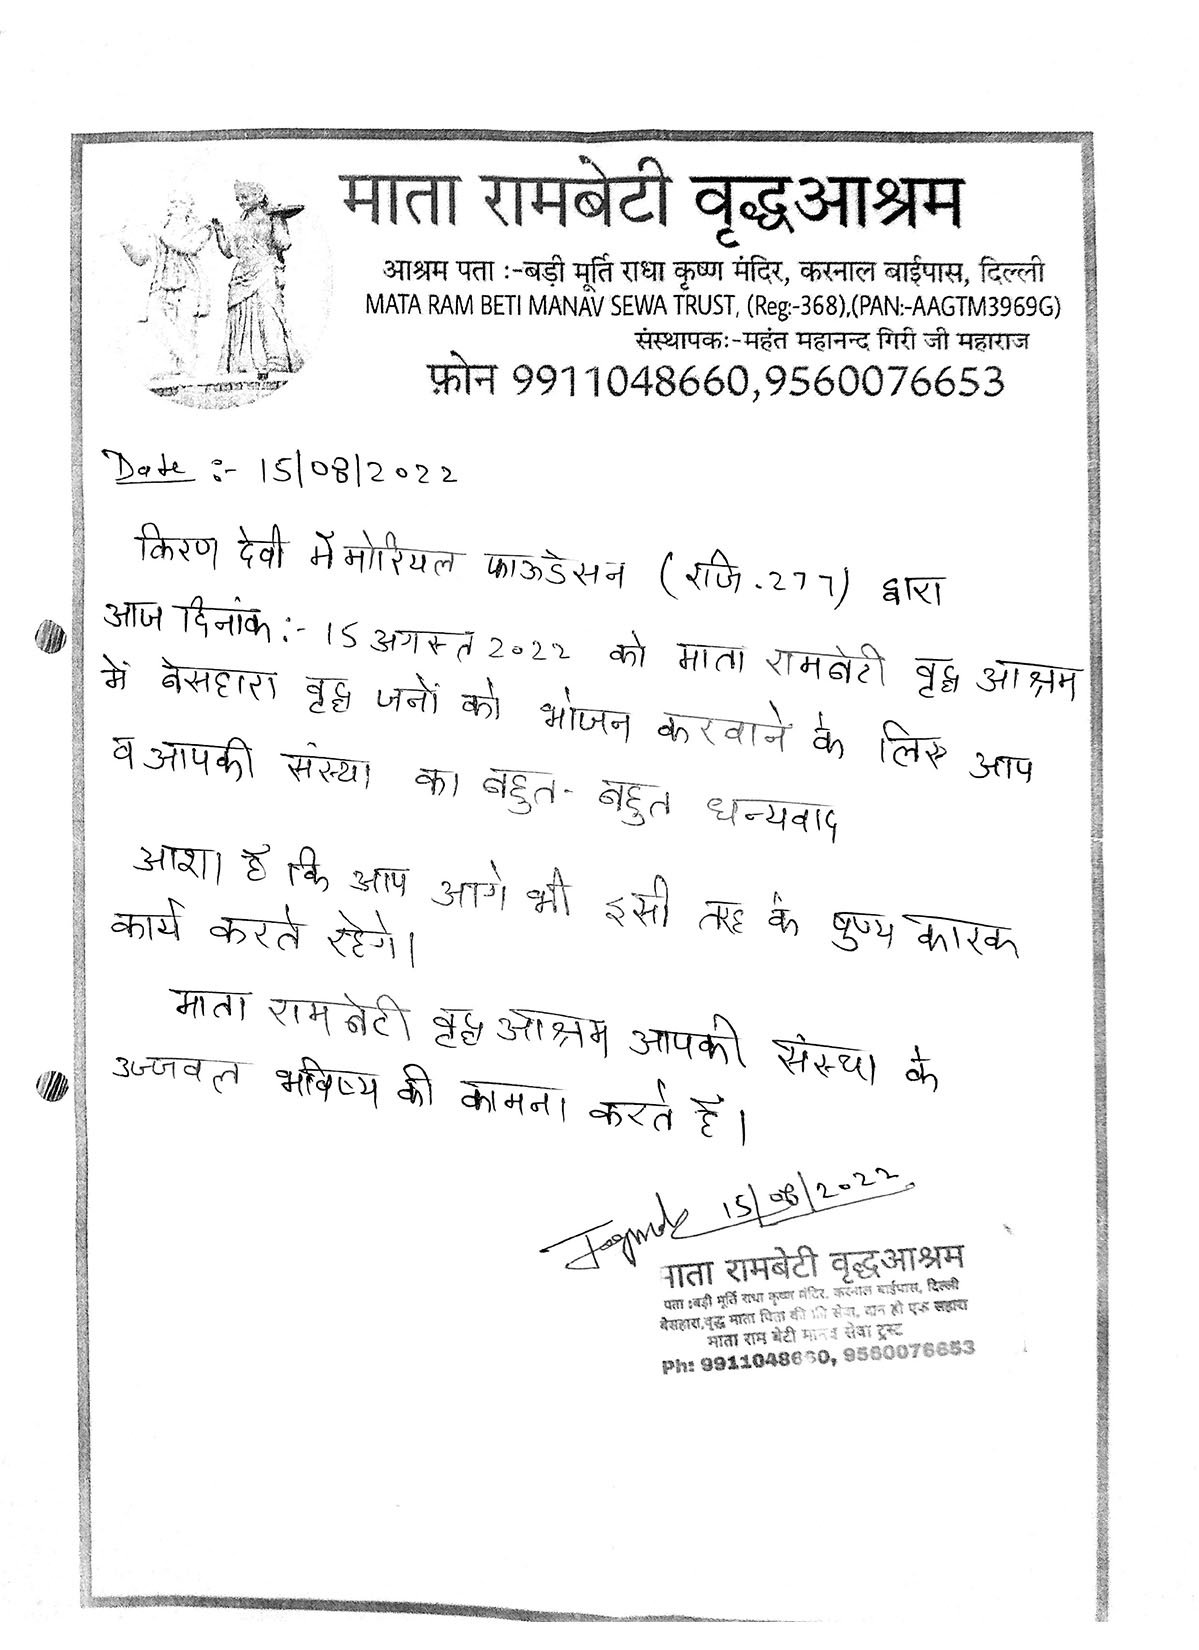 माता रामबेटी वृद्धआश्रम
आश्रम पता :-बड़ी मूर्ति राधा कृष्ण मंदिर, करनाल बाईपास, दिल्ली
MATA RAM BETI MANAV SEWA TRUST, (Reg:-368),(PAN:-AAGTM3969G)
संस्थापक:-महंत महानन्द गिरी जी महाराज
फ़ोन 9911048660,9560076653
Date :- 15/08/2022
किरण देवी मेमोरियल फाऊडेसन (रजि.277) द्वारा
आज दिनांक:- 15 अगस्त 2022 को माता रामबेटी वृद्ध आश्रम
में बेसहारा वृद्ध जनों को भोजन करवाने के लिए आप
व आपकी संस्था का बहुत- बहुत धन्यवाद
आशा है कि आप आगे भी इसी तरह के पुण्य कारक
कार्य करते रहेगे।
माता रामबेटी वृद्ध आश्रम आपकी संस्था के
उज्जवल भविष्य की कामना करते हैं।
15/08/2022
माता रामबेटी वृद्धआश्रम
पता :बड़ी मूर्ति राधा कृष्ण मंदिर, करनाल बाईपास, दिल्ली
बेसहारा,वृद्ध माता पिता की सेवा, दान ही एक सहारा
माता राम बेटी मानव सेवा ट्रस्ट
Ph: 9911048660, 9560076653